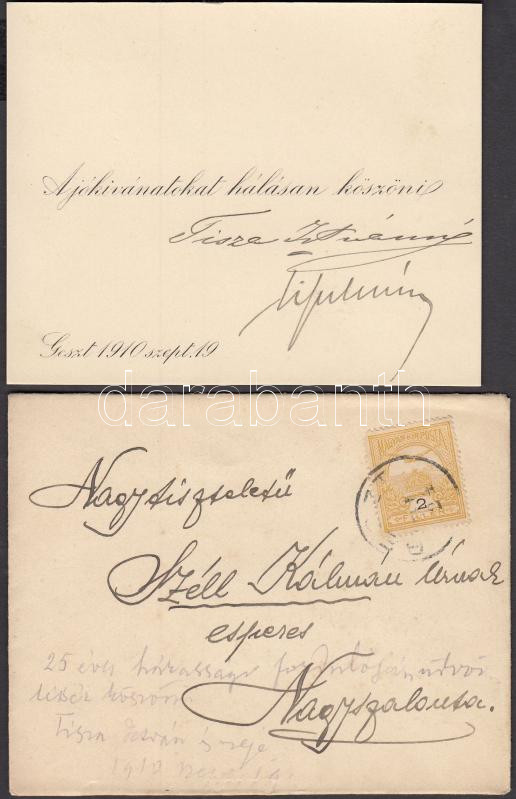 A jókivánatokat hálásan köszöni
Tisza Istvánné
Geszt 1910 szept. 19
darabanth
MAGYAR KIR. POSTA
2
Nagytiszteletű
Széll Kálmán Úrnak
esperes
Nagyszalonta.
25 éves házassági
Tisza István és neje
1910